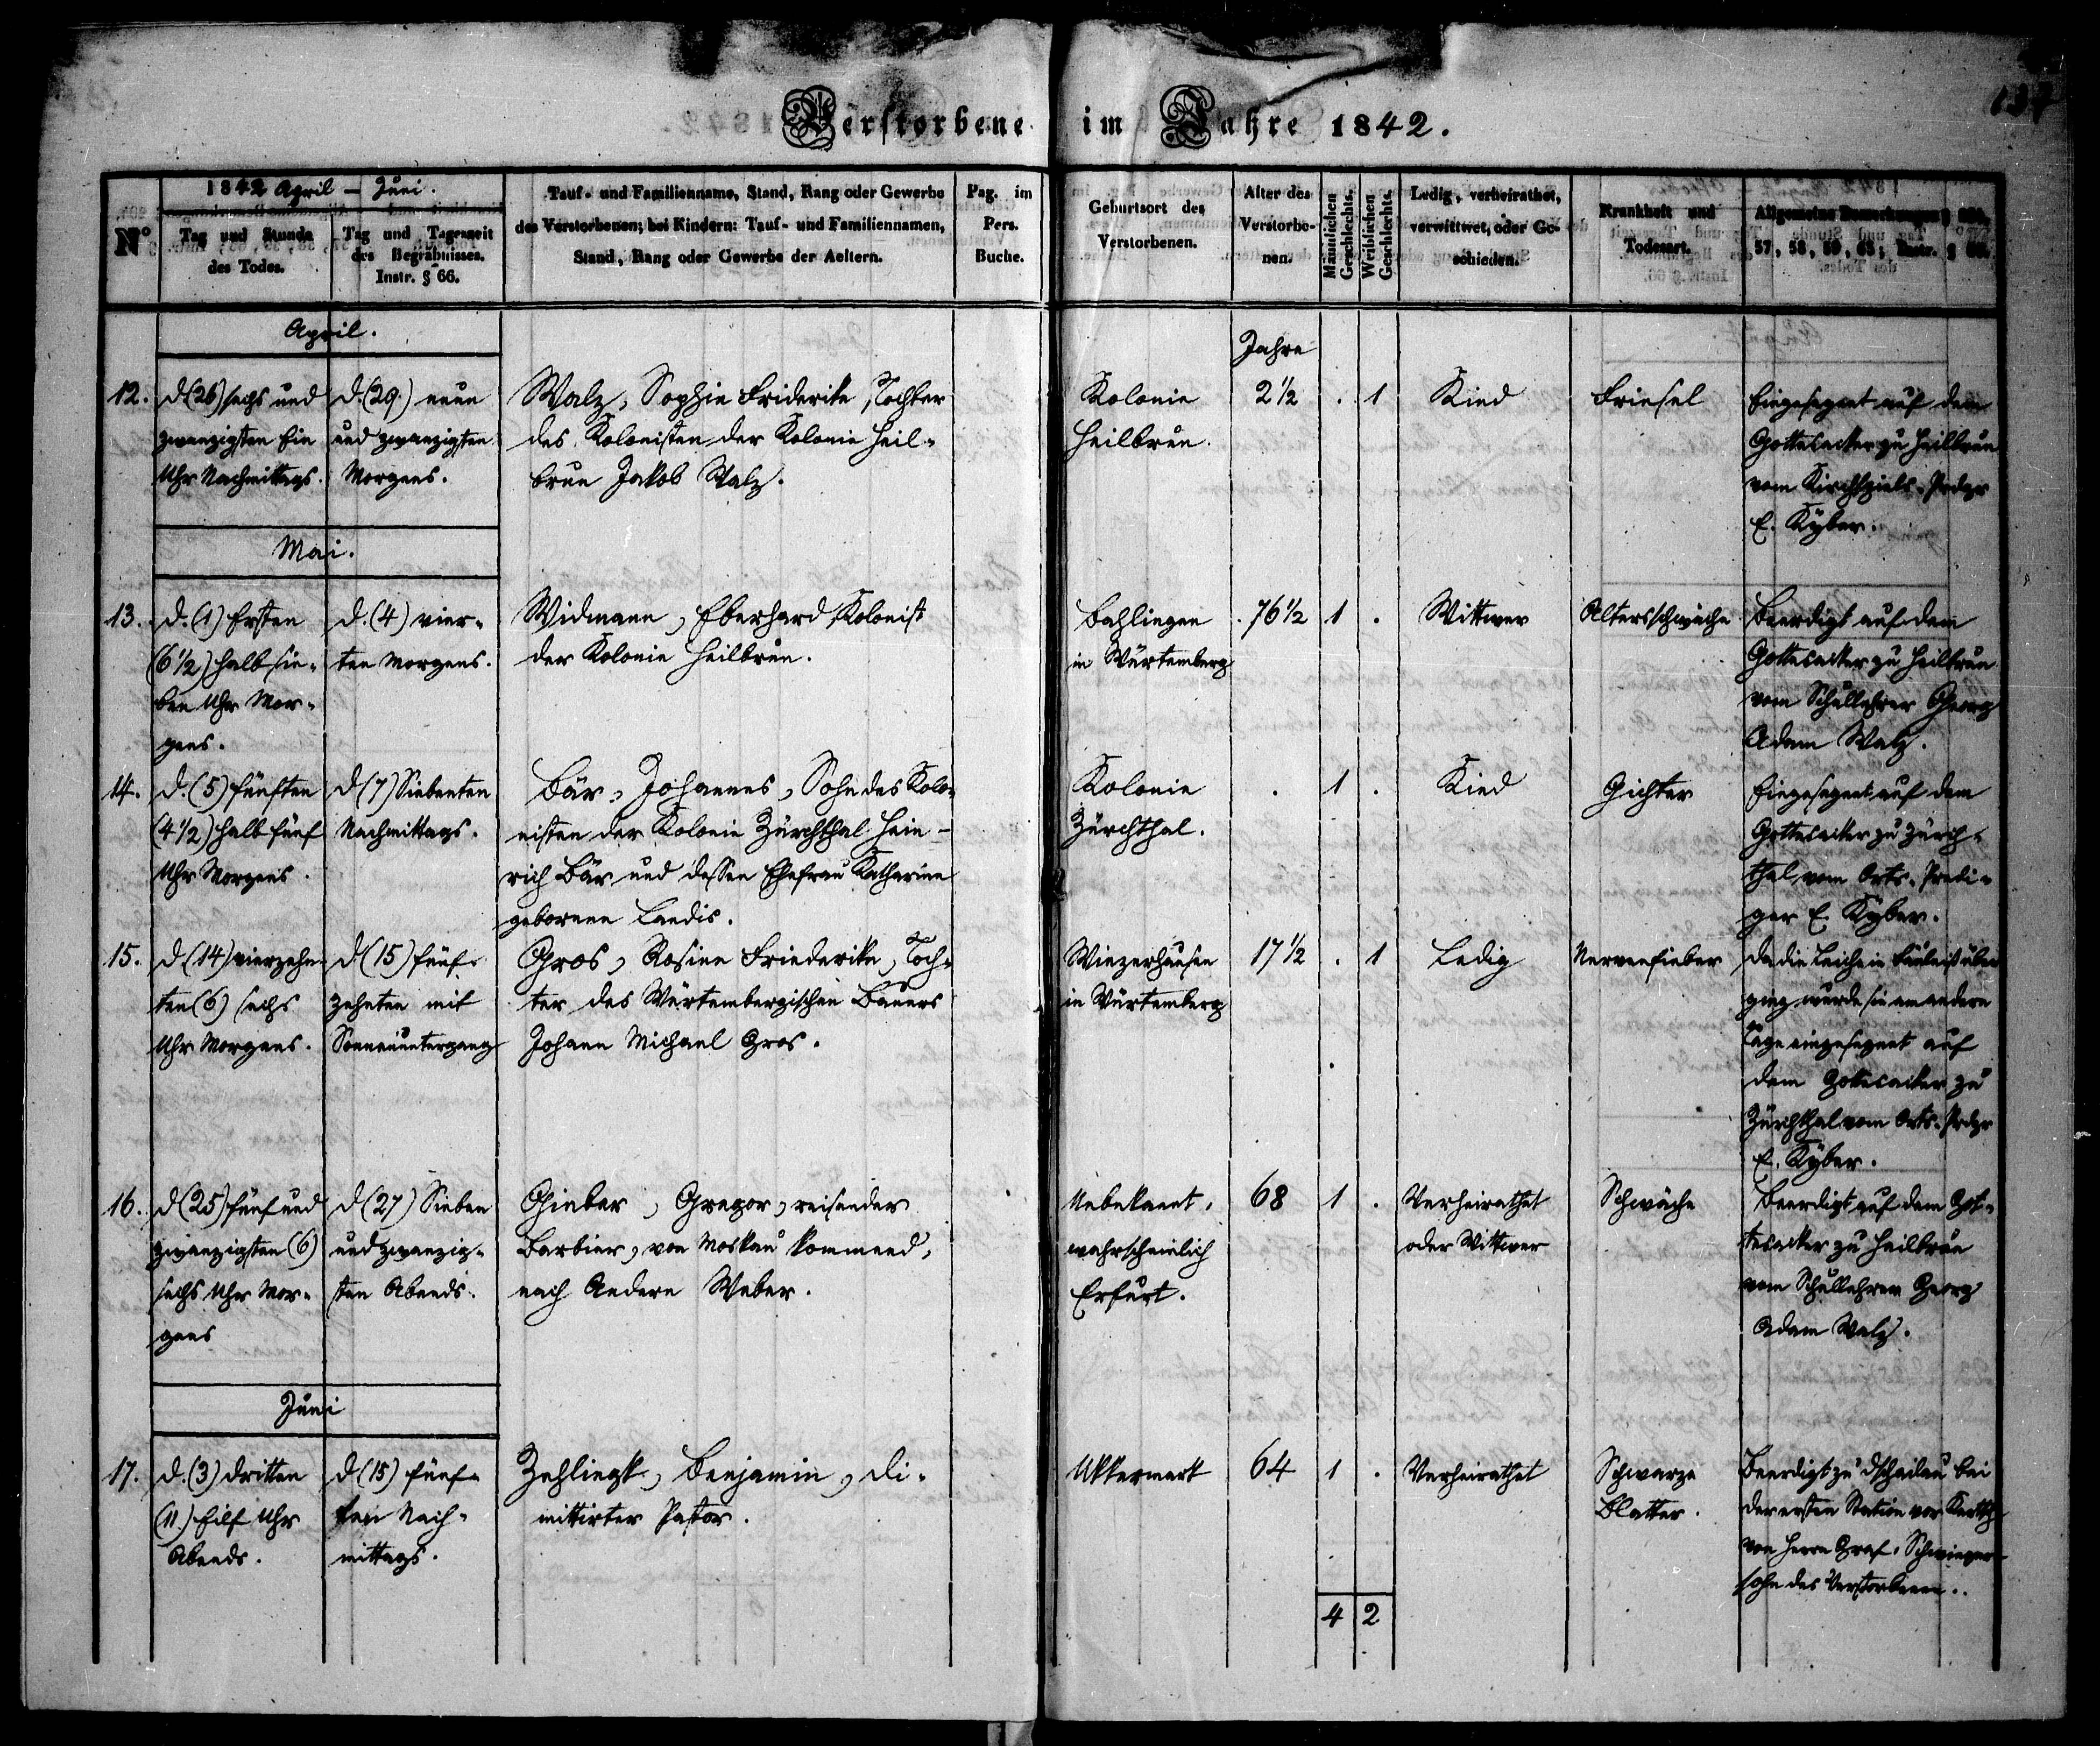 137
Verstorbene im Jahre 1842.
N°
1842 April – Juni.
Tag und Stunde
des Todes.
Tag und Tageszeit
des Begräbnisses.
Instr. § 66.
Tauf- und Familienname, Stand, Rang oder Gewerbe
des Verstorbenen; bei Kindern: Tauf- und Familiennamen,
Stand, Rang oder Gewerbe der Aeltern.
Pag. im
Pers.
Buche.
Geburtsort des
Verstorbenen.
Alter des
Verstorbe-
nen.
Männlichen
Geschlechts.
Weiblichen
Geschlechts.
Ledig, verheirathet,
verwittwet, oder Ge-
schieden.
Krankheit und
Todesart.
Allgemeine Bemerkungen
57, 58, 59, 65; Instr. §
April.
Jahre
12.
d (26) sechs und
zwanzigsten Ein
Uhr Nachmittags.
d. (29.) neun
und zwanzigsten
Morgens.
Walz, Sophie Friderike, Tochter
des Kolonisten der Kolonie Heil-
brun Jakob Walz.
Kolonie
Heilbrun.
2½
. 1
Kind
Friesel
Eingesegnet auf dem
Gottesacker zu Heilbrun
vom Kirchspiels-Prdgr
E. Kyber.
Mai.
13.
d. (1) Ersten
(6½) halb sie-
ben Uhr Mor-
gens.
d. (4) vier-
ten Morgens.
Widmann, Eberhard, Kolonist
der Kolonie Heilbrun.
Bahlingen
in Würtemberg
76½
1 .
Wittwer
Altersschwäche
Beerdigt auf dem
Gottesacker zu Heilbrun
vom Schullehrer Georg
Adam Walz.
14.
d. (5) fünften
(4½) halb fünf
Uhr Morgens.
d (7) Siebenten
Nachmittags.
Bär, Johannes, Sohn des Kolo-
nisten der Kolonie Zürchthal Hein-
rich Bär und dessen Ehefrau Katharine
geborene Landis.
Kolonie
Zürchthal.
.
1 .
Kind
Gichter
Eingesegnet auf dem
Gottesacker zu Zürch-
thal, vom Orts-Predi-
ger E. Kyber.
15.
d (14) vierzehn-
ten (6) sechs
Uhr Morgens.
d (15) fünf-
zehnten mit
Sonnenuntergang
Gros, Rosine Friederike, Toch-
ter des Würtembergischen Bauers
Johann Michael Gros.
Winzerhausen
in Würtemberg
17½
. 1
Ledig
Nervenfieber
Da die Leiche in Fäulniß über
ging wurde sie am andern
Tage eingesegnet auf
dem Gottesacker zu
Zürchthal vom Orts-Prdgr
E. Kyber.
16.
d (25) fünf und
zwanzigsten (6)
sechs Uhr Mor-
gens
d (27) Sieben
und zwanzig-
sten Abends.
Ginber, Gregor, reisender
Barbier, von Moskau kommend,
nach Andern Weber.
Unbekannt,
wahrscheinlich
Erfurt.
68
1 .
Verheirathet
oder Wittwer
Schwäche
Beerdigt auf dem Got-
tesacker zu Heilbrun
vom Schullehrer Georg
Adam Walz.
Juni
17.
d. (3) dritten
(11.) Eilf Uhr
Abends.
d (15) fünf-
ten Nach-
mittags.
Benjamin, di-
mittirter Pastor.
Ukkermark
64
1 .
Verheirathet
Schwarze
Blatter.
Beerdigt zu Dschailau bei
der ersten Station vor Kertsch
von Herrn Graf, Schwieger-
sohn des Verstorbenen.
4 2